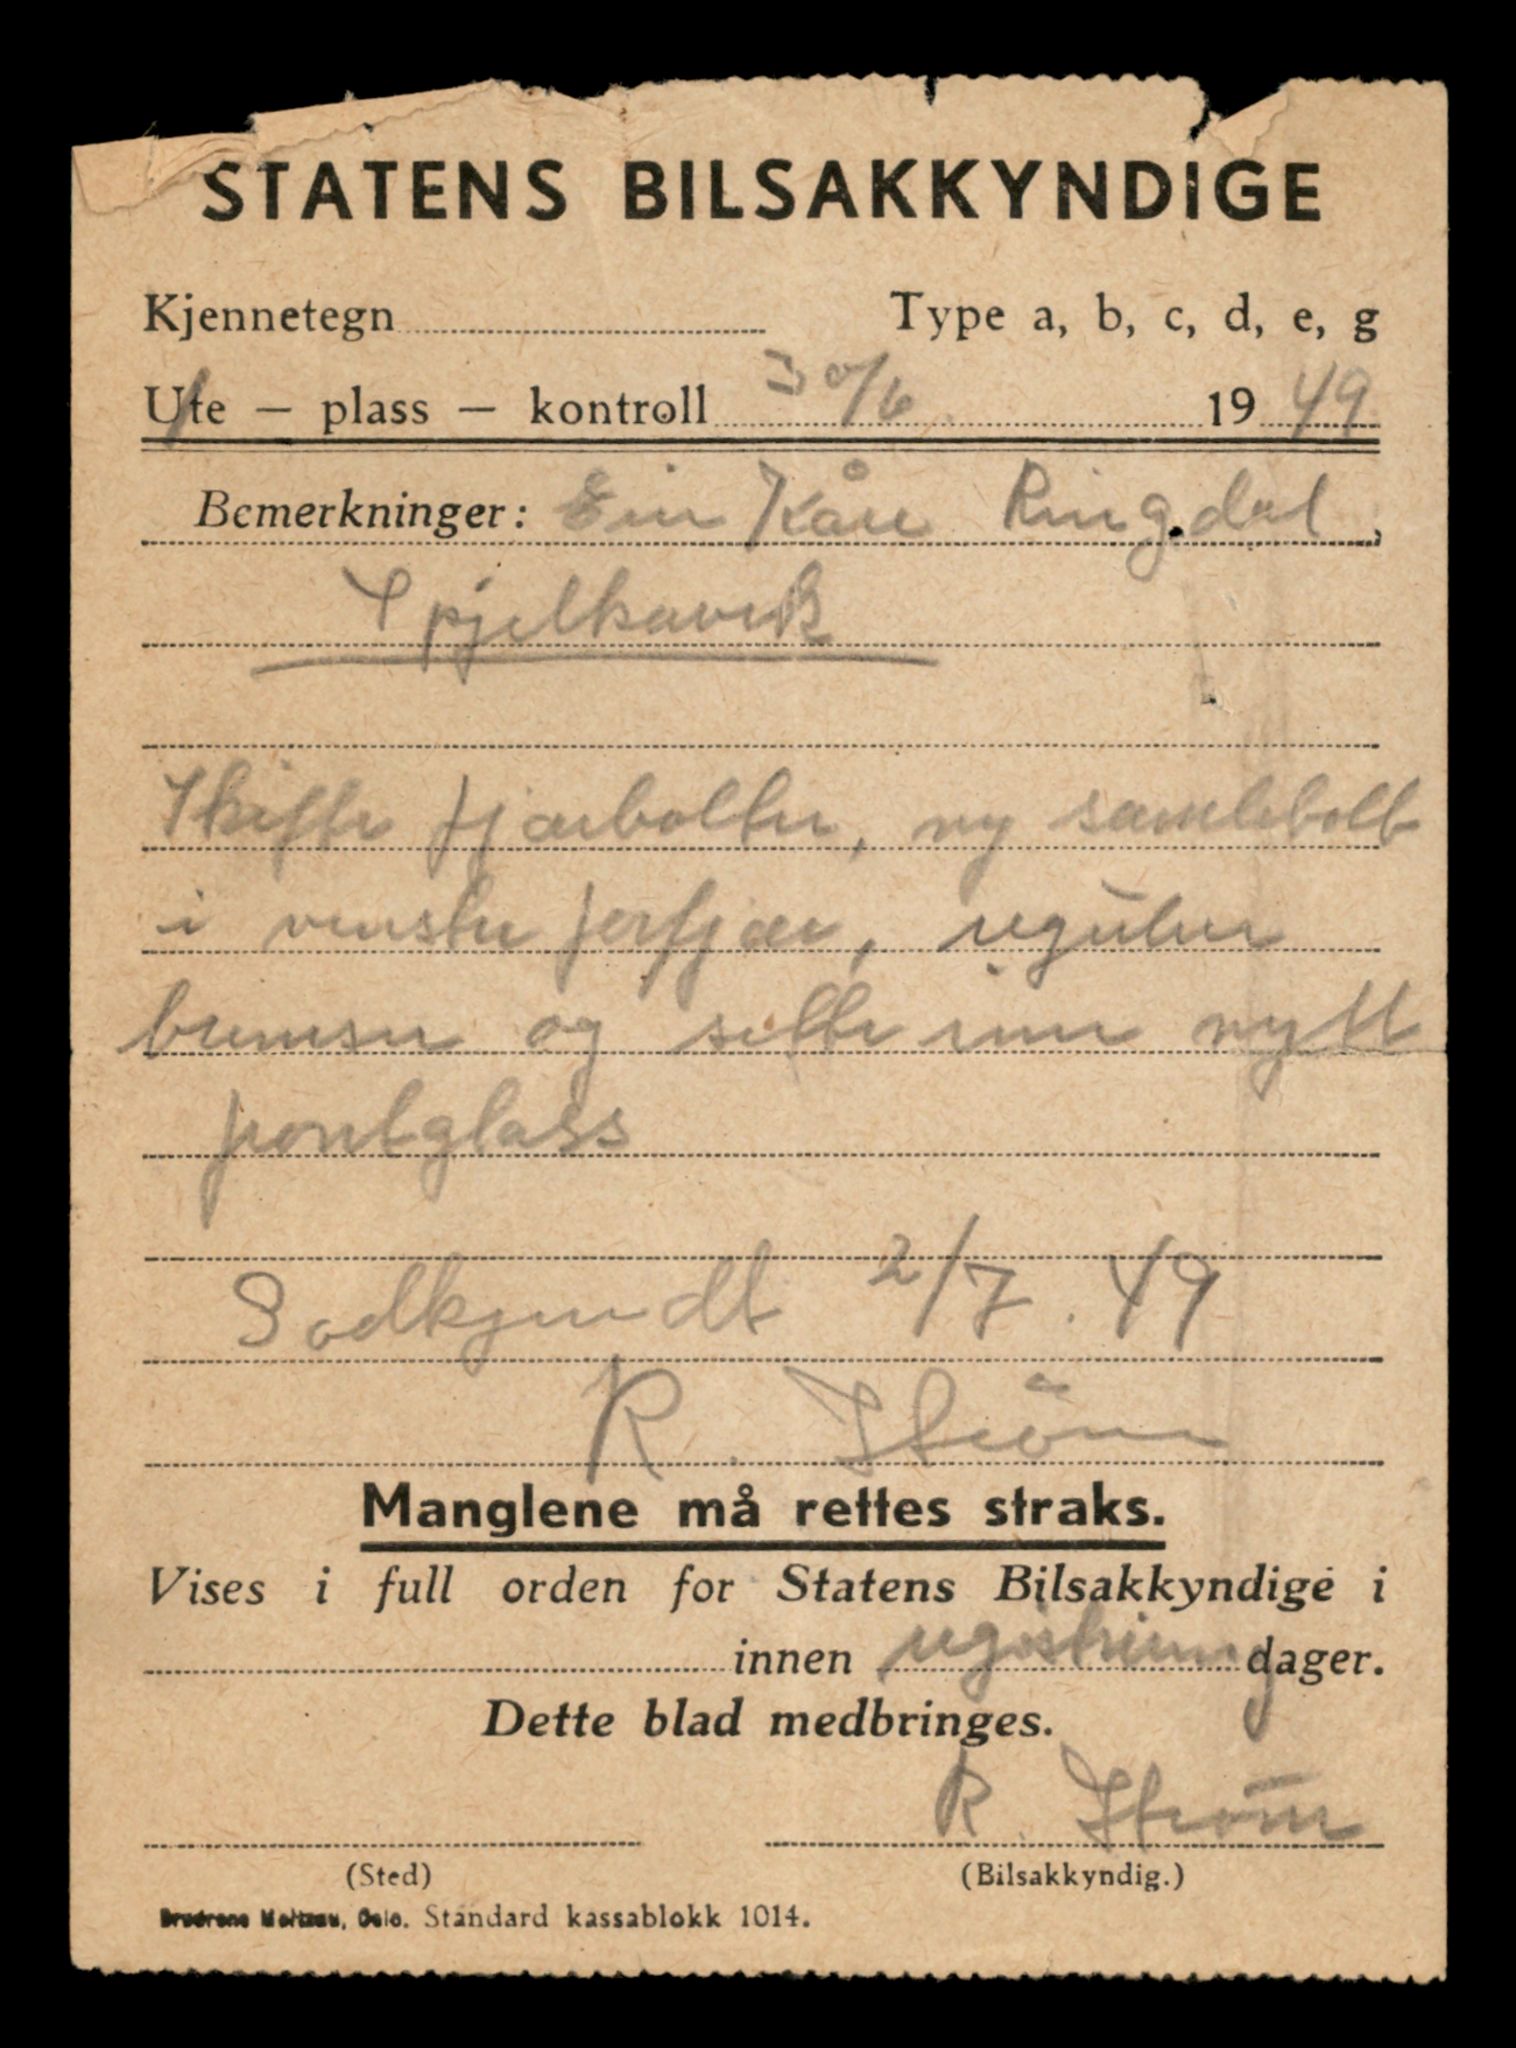 STATENS BILSAKKYNDIGE
Kjennetegn Type a, b, c, d, e, g
Ute — plass — kontroll 30/6 1949
Bemerkninger: Eier Kåre Ringdal,
Spjelkavik
Skifte fjærbolter, ny samlebolt
i venstre forfjær, regulere
bremser og sette inn nytt
frontglass
Godkjendt 2/7. 49
R. Strøm
Manglene må rettes straks.
Vises i full orden for Statens Bilsakkyndige i
innen registrering dager.
Dette blad medbringes.
R. Strøm
(Sted) (Bilsakkyndig.)
Brødrene Meltzau, Oslo. Standard kassablokk 1014.